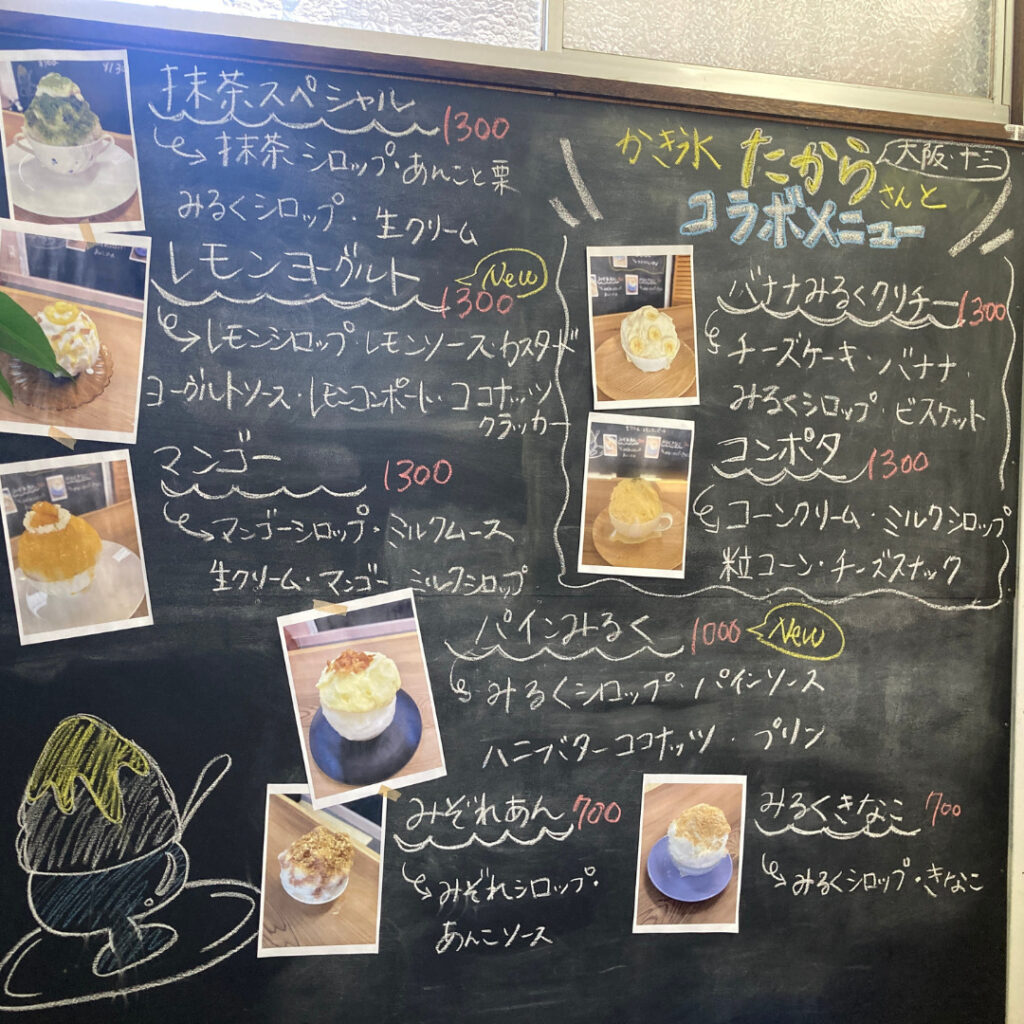 抹茶スペシャル 1300
抹茶シロップ・あんこと栗
みるくシロップ・生クリーム
レモンヨーグルト 1300 New
レモンシロップ・レモンソース・カスタード
ヨーグルトソース・レモンコンポート・ココナッツ
クラッカー
マンゴー 1300
マンゴーシロップ・ミルクムース
生クリーム・マンゴー ミルクシロップ
かき氷 たから さんと
大阪・十三
コラボメニュー
バナナみるくクリチー 1300
チーズケーキ・バナナ・
みるくシロップ・ビスケット
コンポタ 1300
コーンクリーム・ミルクシロップ
粒コーン・チーズスナック
パインみるく 1000 New
みるくシロップ・パインソース
ハニーバターココナッツ・プリン
みぞれあん 700
みぞれシロップ・
あんこソース
みるくきなこ 700
みるくシロップ・きなこ